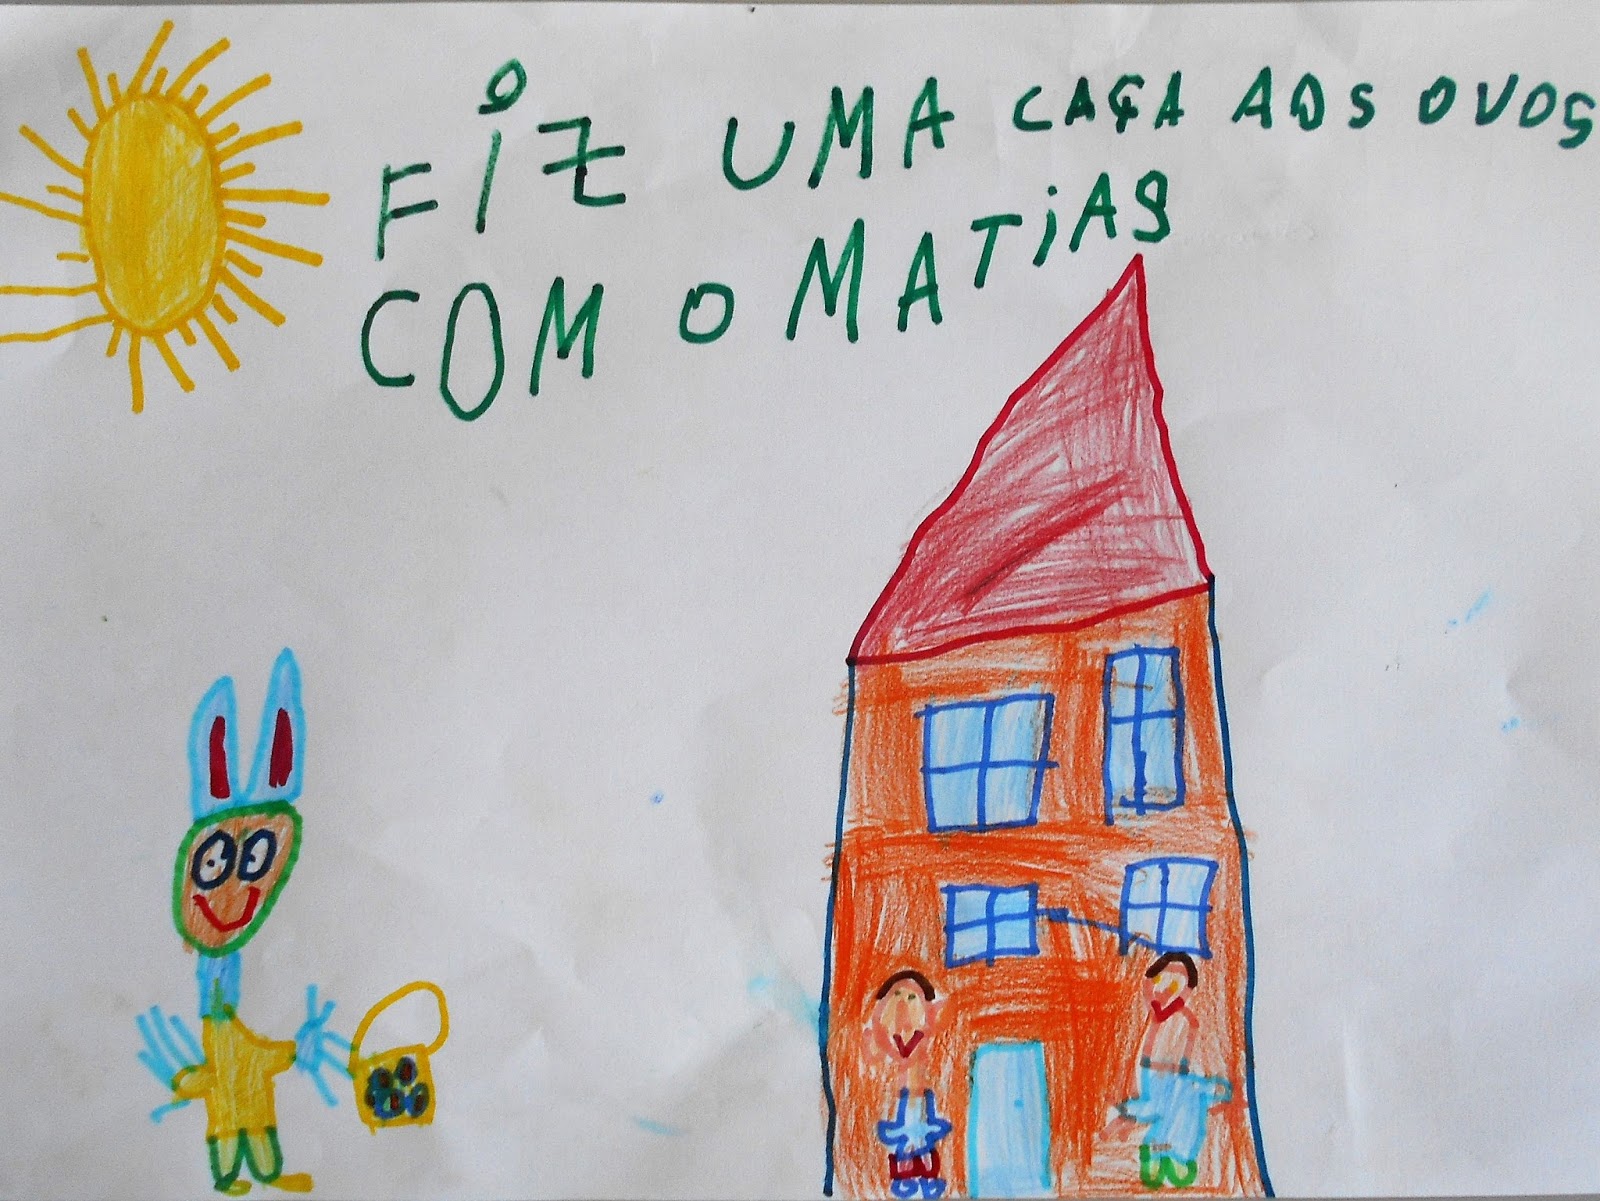 FiZ UMA CAÇA AOS OVOS
COM O MATiAS